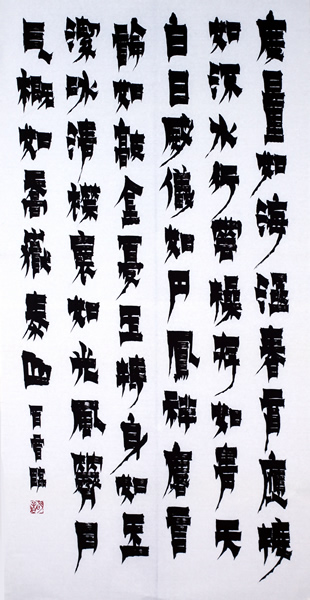 度量如海涵春育應接
如流水行雲操存如青天
白日威儀如丹鳳祥麟言
論如敲金戛玉持身如玉
潔冰清襟如光風霽月
氣概如喬嶽泰山